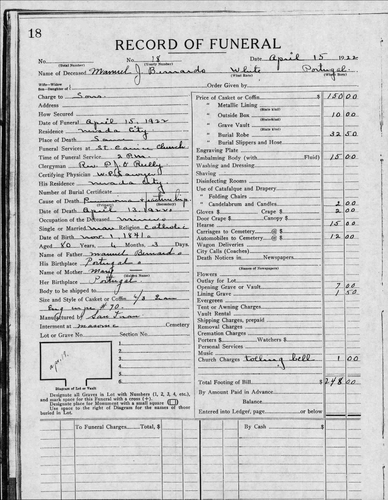 18
RECORD OF FUNERAL
No. 18 Date April 15, 1922
(Total Number) (Yearly Number)
Name of Deceased Manuel J. Bernardo White Portugal
(What Race) (Where Born)
Wife—Widow
Son—Daughter of Order Given by
Charge to Sons
Address
How Secured
Date of Funeral April 15, 1922
Residence Nevada City
Place of Death Same
Funeral Services at St Canice Church
Time of Funeral Service 2 P.M.
Clergyman Rev P. J. O'Reilly
Certifying Physician
His Residence Nevada City
Number of Burial Certificate
Cause of Death Pneumonia
Date of Death April 13, 1922
Occupation of the Deceased
Single or Married Religion Catholic
Date of Birth Nov 1, 1841
Aged 80 Years Months Days
Name of Father Manuel Bernardo
His Birthplace Portugal
Name of Mother Mary
Her Birthplace Portugal
Body to be shipped to
Size and Style of Casket or Coffin
Manufactured by San Fran
Interment at Masonic Cemetery
Lot or Grave No. Section No.
Diagram of Lot or Vault
Designate all Graves in Lot with Numbers (1, 2, 3, 4, etc.),
and mark space for this Funeral with a cross (+).
Designate place for Monument with a small square
Use space to the right of Diagram for the names of those
buried in Lot.
Price of Casket or Coffin $ 150 00
" Metallic Lining
" Outside Box 10 00
" Grave Vault
" Burial Robe 32 50
" Burial Slippers and Hose
Engraving Plate
Embalming Body (with Fluid) 15 00
Washing and Dressing
Shaving
Disinfecting Rooms
Use of Catafalque and Drapery
" Folding Chairs
" Candelabrum and Candles 2 00
Gloves $ Crape $ 2 00
Door Crape $ Canopy $
Hearse 15 00
Carriages to Cemetery @ $
Automobiles to Cemetery @ $ 12 00
Wagon Deliveries
City Calls (Coaches)
Death Notices in Newspapers
(Names of Newspapers)
Flowers
Outlay for Lot
Opening Grave or Vault 7 00
Lining Grave 1 50
Evergreen
Tent or Awning Charges
Vault Rental
Shipping Charges, prepaid
Removal Charges
Cremation Charges
Porters $ Watchers $
Personal Services
Music
Church Charges tolling bell 1 00
Total Footing of Bill $ 248 00
By Amount Paid in Advance
Balance
Entered into Ledger, page or below
To Funeral Charges, Total $ By Cash $